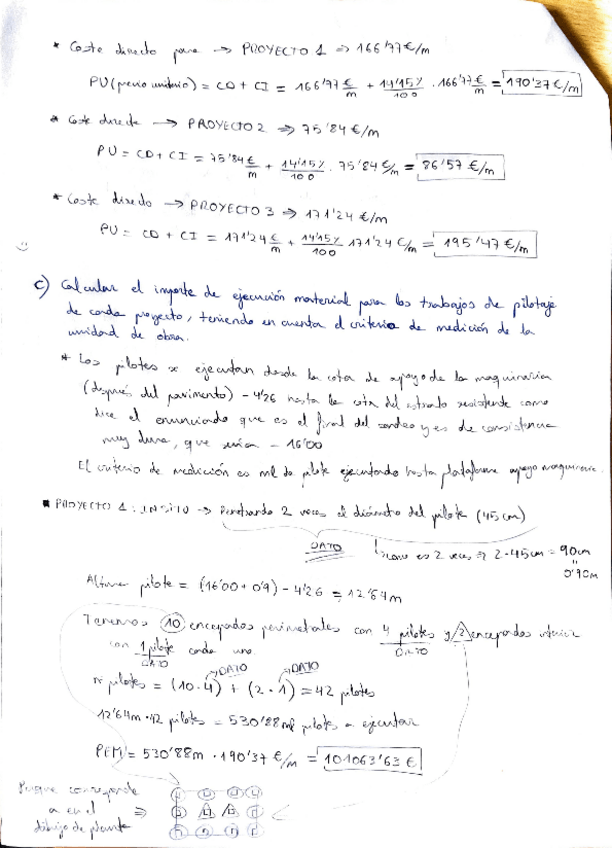 * Coste directo para → PROYECTO 1 ⇒ 166'77 €/m
PU (precio unitario) = CD + CI = 166'77 €/m + 14'15%/100 · 166'77 €/m = 190'37 €/m
* Coste directo → PROYECTO 2 ⇒ 75'84 €/m
PU = CD + CI = 75'84 €/m + 14'15%/100 · 75'84 €/m = 86'57 €/m
* Coste directo → PROYECTO 3 ⇒ 171'24 €/m
PU = CD + CI = 171'24 €/m + 14'15%/100 171'24 €/m = 195'47 €/m
c) Calcular el importe de ejecución material para los trabajos de pilotaje
de cada proyecto, teniendo en cuenta el criterio de medición de la
unidad de obra.
* Los pilotes se ejecutan desde la cota de apoyo de la maquinaria
(después del pavimento) - 4'26 hasta la cota del estrato resistente como
dice el enunciado que es el final del sondeo y es de consistencia
muy dura, que sería - 16'00
El criterio de medición es ml de pilote ejecutado hasta plataforma apoyo maquinaria.
PROYECTO 1: INSITU → Penetrando 2 veces el diámetro del pilote (45 cm)
DATO como es 2 veces 2·45cm = 90cm
0'90m
Altura pilote = (16'00 + 0'9) - 4'26 = 12'64 m
Tenemos 10 encepados perimetrales con 4 pilotes y 2 encepados interior
con 1 pilote cada uno
DATO DATO
DATO DATO
nº pilotes = (10·4) + (2·1) = 42 pilotes
12'64m·42 pilotes = 530'88 ml pilotes a ejecutar
PEM = 530'88m · 190'37 €/m = 101063'63 €
Porque corresponde
a en el ⇒
dibujo de planta